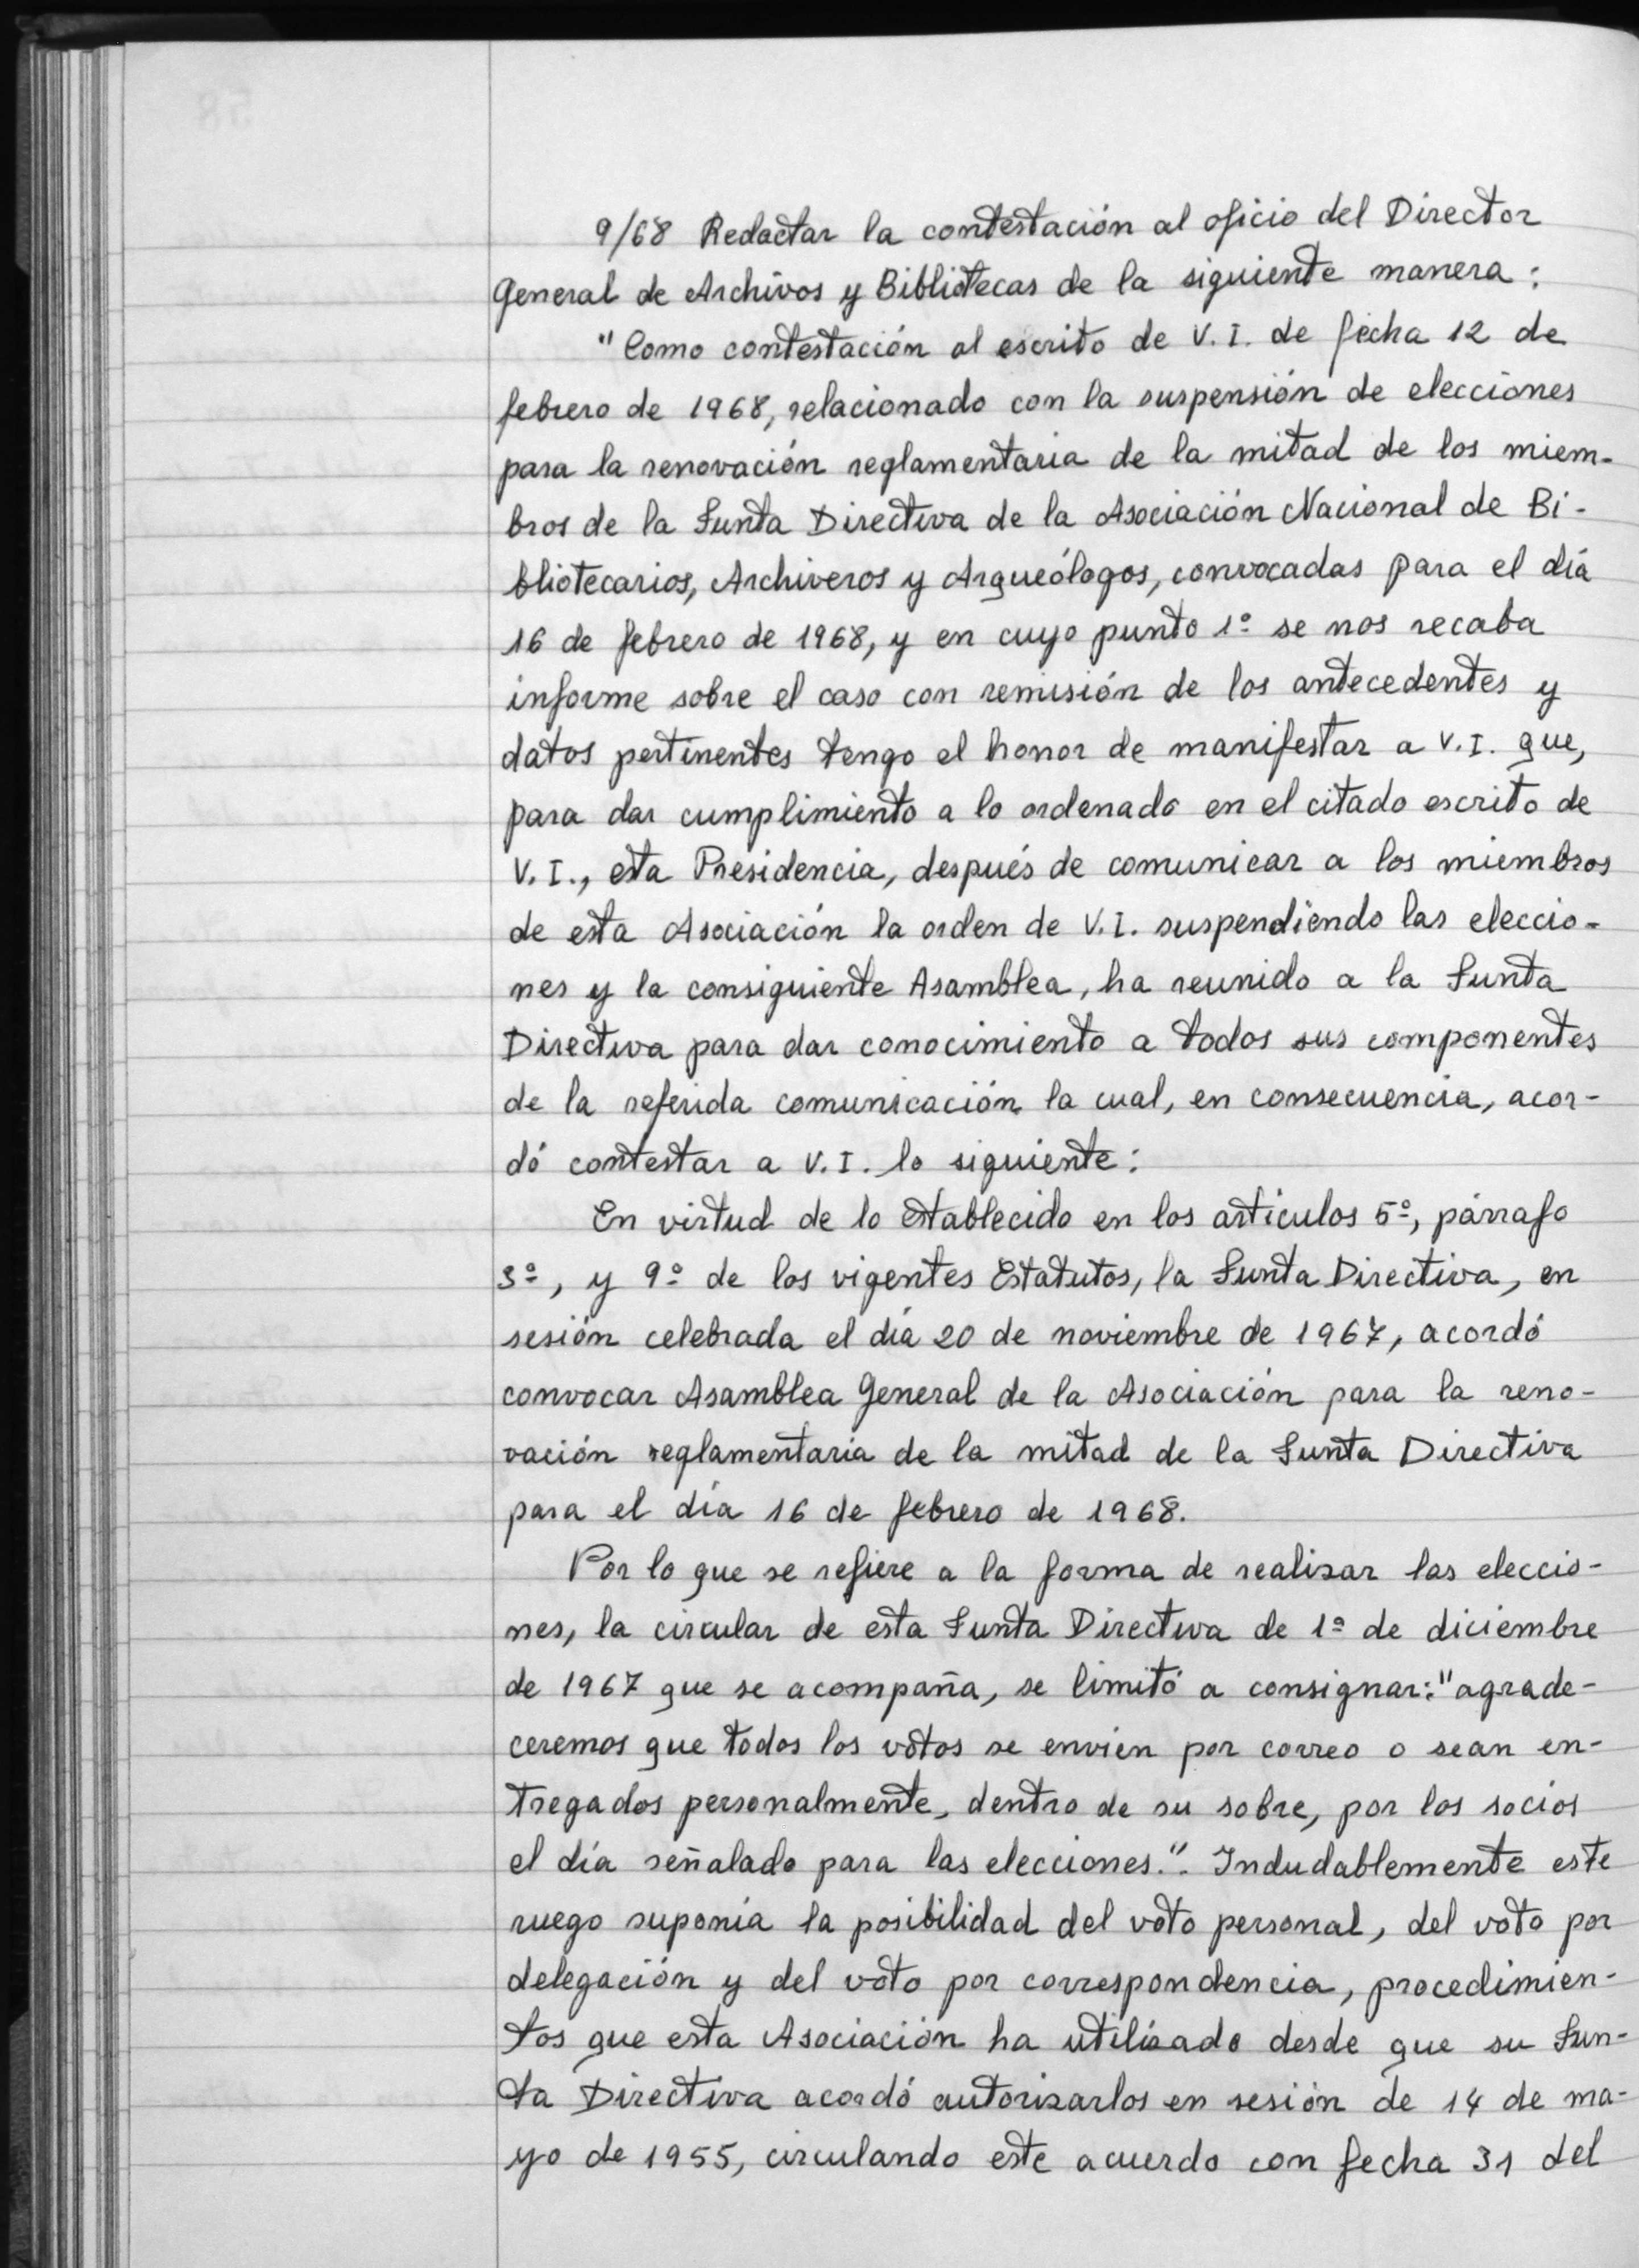 9/68 Redactar la contestación al oficio del Director
General de Archivos y Bibliotecas de la siguiente manera:
"Como contestación al escrito de V.I. de fecha 12 de
febrero de 1968, relacionado con la suspensión de elecciones
para la renovación reglamentaria de la mitad de los miem-
bros de la Junta Directiva de la Asociación Nacional de Bi-
bliotecarios, Archiveros y Arqueólogos, convocadas para el día
16 de febrero de 1968, y en cuyo punto 1º se nos recaba
informe sobre el caso con remisión de los antecedentes y
datos pertinentes tengo el honor de manifestar a V.I. que,
para dar cumplimiento a lo ordenado en el citado escrito de
V.I., esta Presidencia, después de comunicar a los miembros
de esta Asociación la orden de V.I. suspendiendo las eleccio-
nes y la consiguiente Asamblea, ha reunido a la Junta
Directiva para dar conocimiento a todos sus componentes
de la referida comunicación la cual, en consecuencia, acor-
dó contestar a V.I. lo siguiente:
En virtud de lo establecido en los artículos 5º, párrafo
3º, y 9º de los vigentes Estatutos, la Junta Directiva, en
sesión celebrada el día 20 de noviembre de 1967, acordó
convocar Asamblea General de la Asociación para la reno-
vación reglamentaria de la mitad de la Junta Directiva
para el día 16 de febrero de 1968.
Por lo que se refiere a la forma de realizar las eleccio-
nes, la circular de esta Junta Directiva de 1º de diciembre
de 1967 que se acompaña, se limitó a consignar: "agrade-
ceremos que todos los votos se envíen por correo o sean en-
tregados personalmente, dentro de su sobre, por los socios
el día señalado para las elecciones.". Indudablemente este
ruego suponía la posibilidad del voto personal, del voto por
delegación y del voto por correspondencia, procedimien-
tos que esta Asociación ha utilizado desde que su Jun-
ta Directiva acordó autorizarlos en sesión de 14 de ma-
yo de 1955, circulando este acuerdo con fecha 31 del